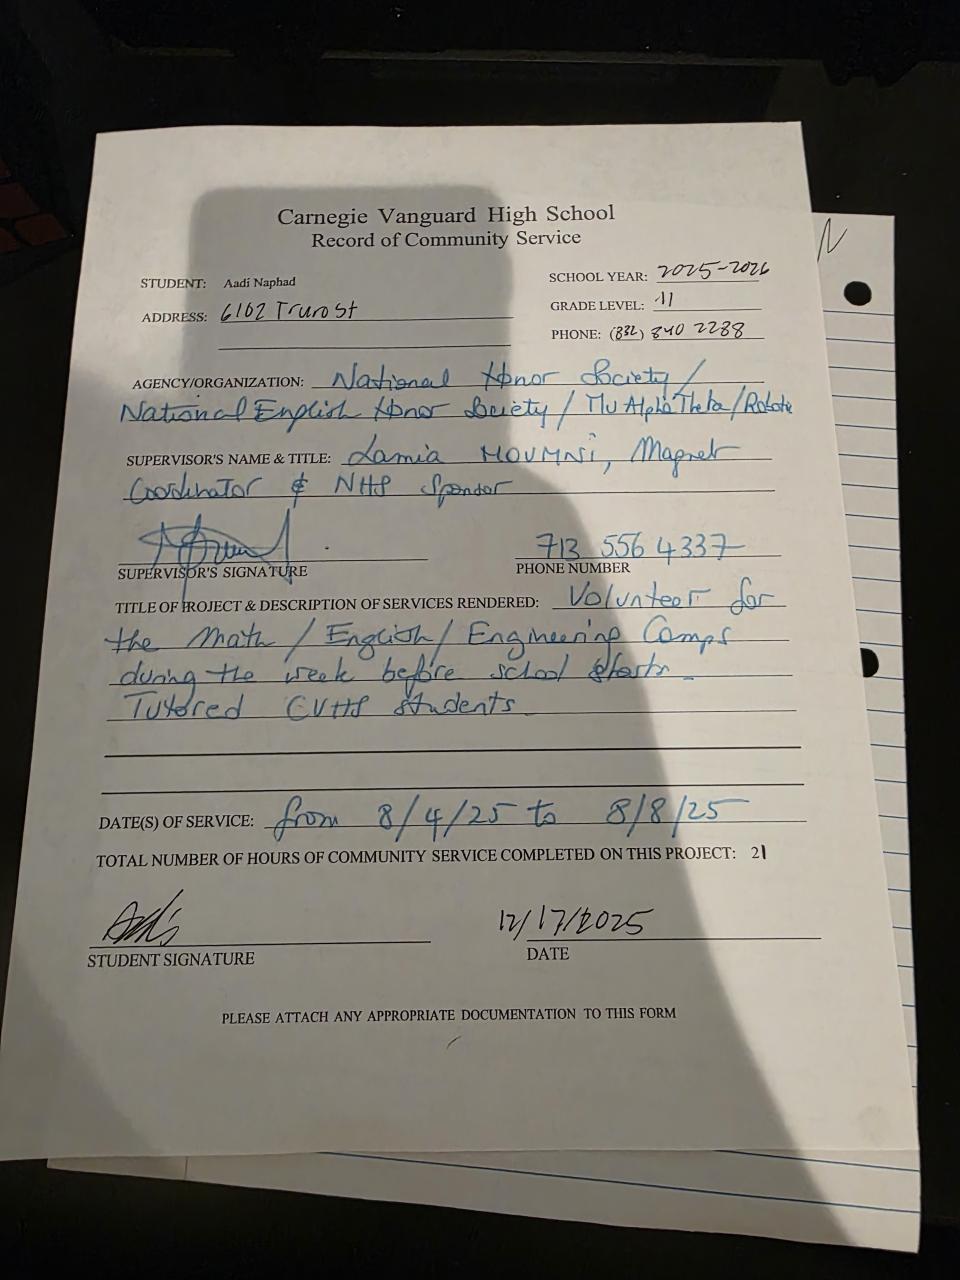 Carnegie Vanguard High School
Record of Community Service
STUDENT: Aadi Naphad
SCHOOL YEAR: 2025-2026
ADDRESS: 6102 Truro St
GRADE LEVEL: 11
PHONE: (832) 840 2288
AGENCY/ORGANIZATION: National Honor Society /
National English Honor Society / Mu Alpha Theta / Robotic
SUPERVISOR'S NAME & TITLE: Lamia MOUMNI, Magnet
Coordinator & NHS Sponsor
713 556 4337
SUPERVISOR'S SIGNATURE
PHONE NUMBER
TITLE OF PROJECT & DESCRIPTION OF SERVICES RENDERED: Volunteer for
the Math / English / Engineering Camps
during the week before school starts.
Tutored CVHS students
DATE(S) OF SERVICE: from 8/4/25 to 8/8/25
TOTAL NUMBER OF HOURS OF COMMUNITY SERVICE COMPLETED ON THIS PROJECT: 21
12/17/2025
STUDENT SIGNATURE
DATE
PLEASE ATTACH ANY APPROPRIATE DOCUMENTATION TO THIS FORM